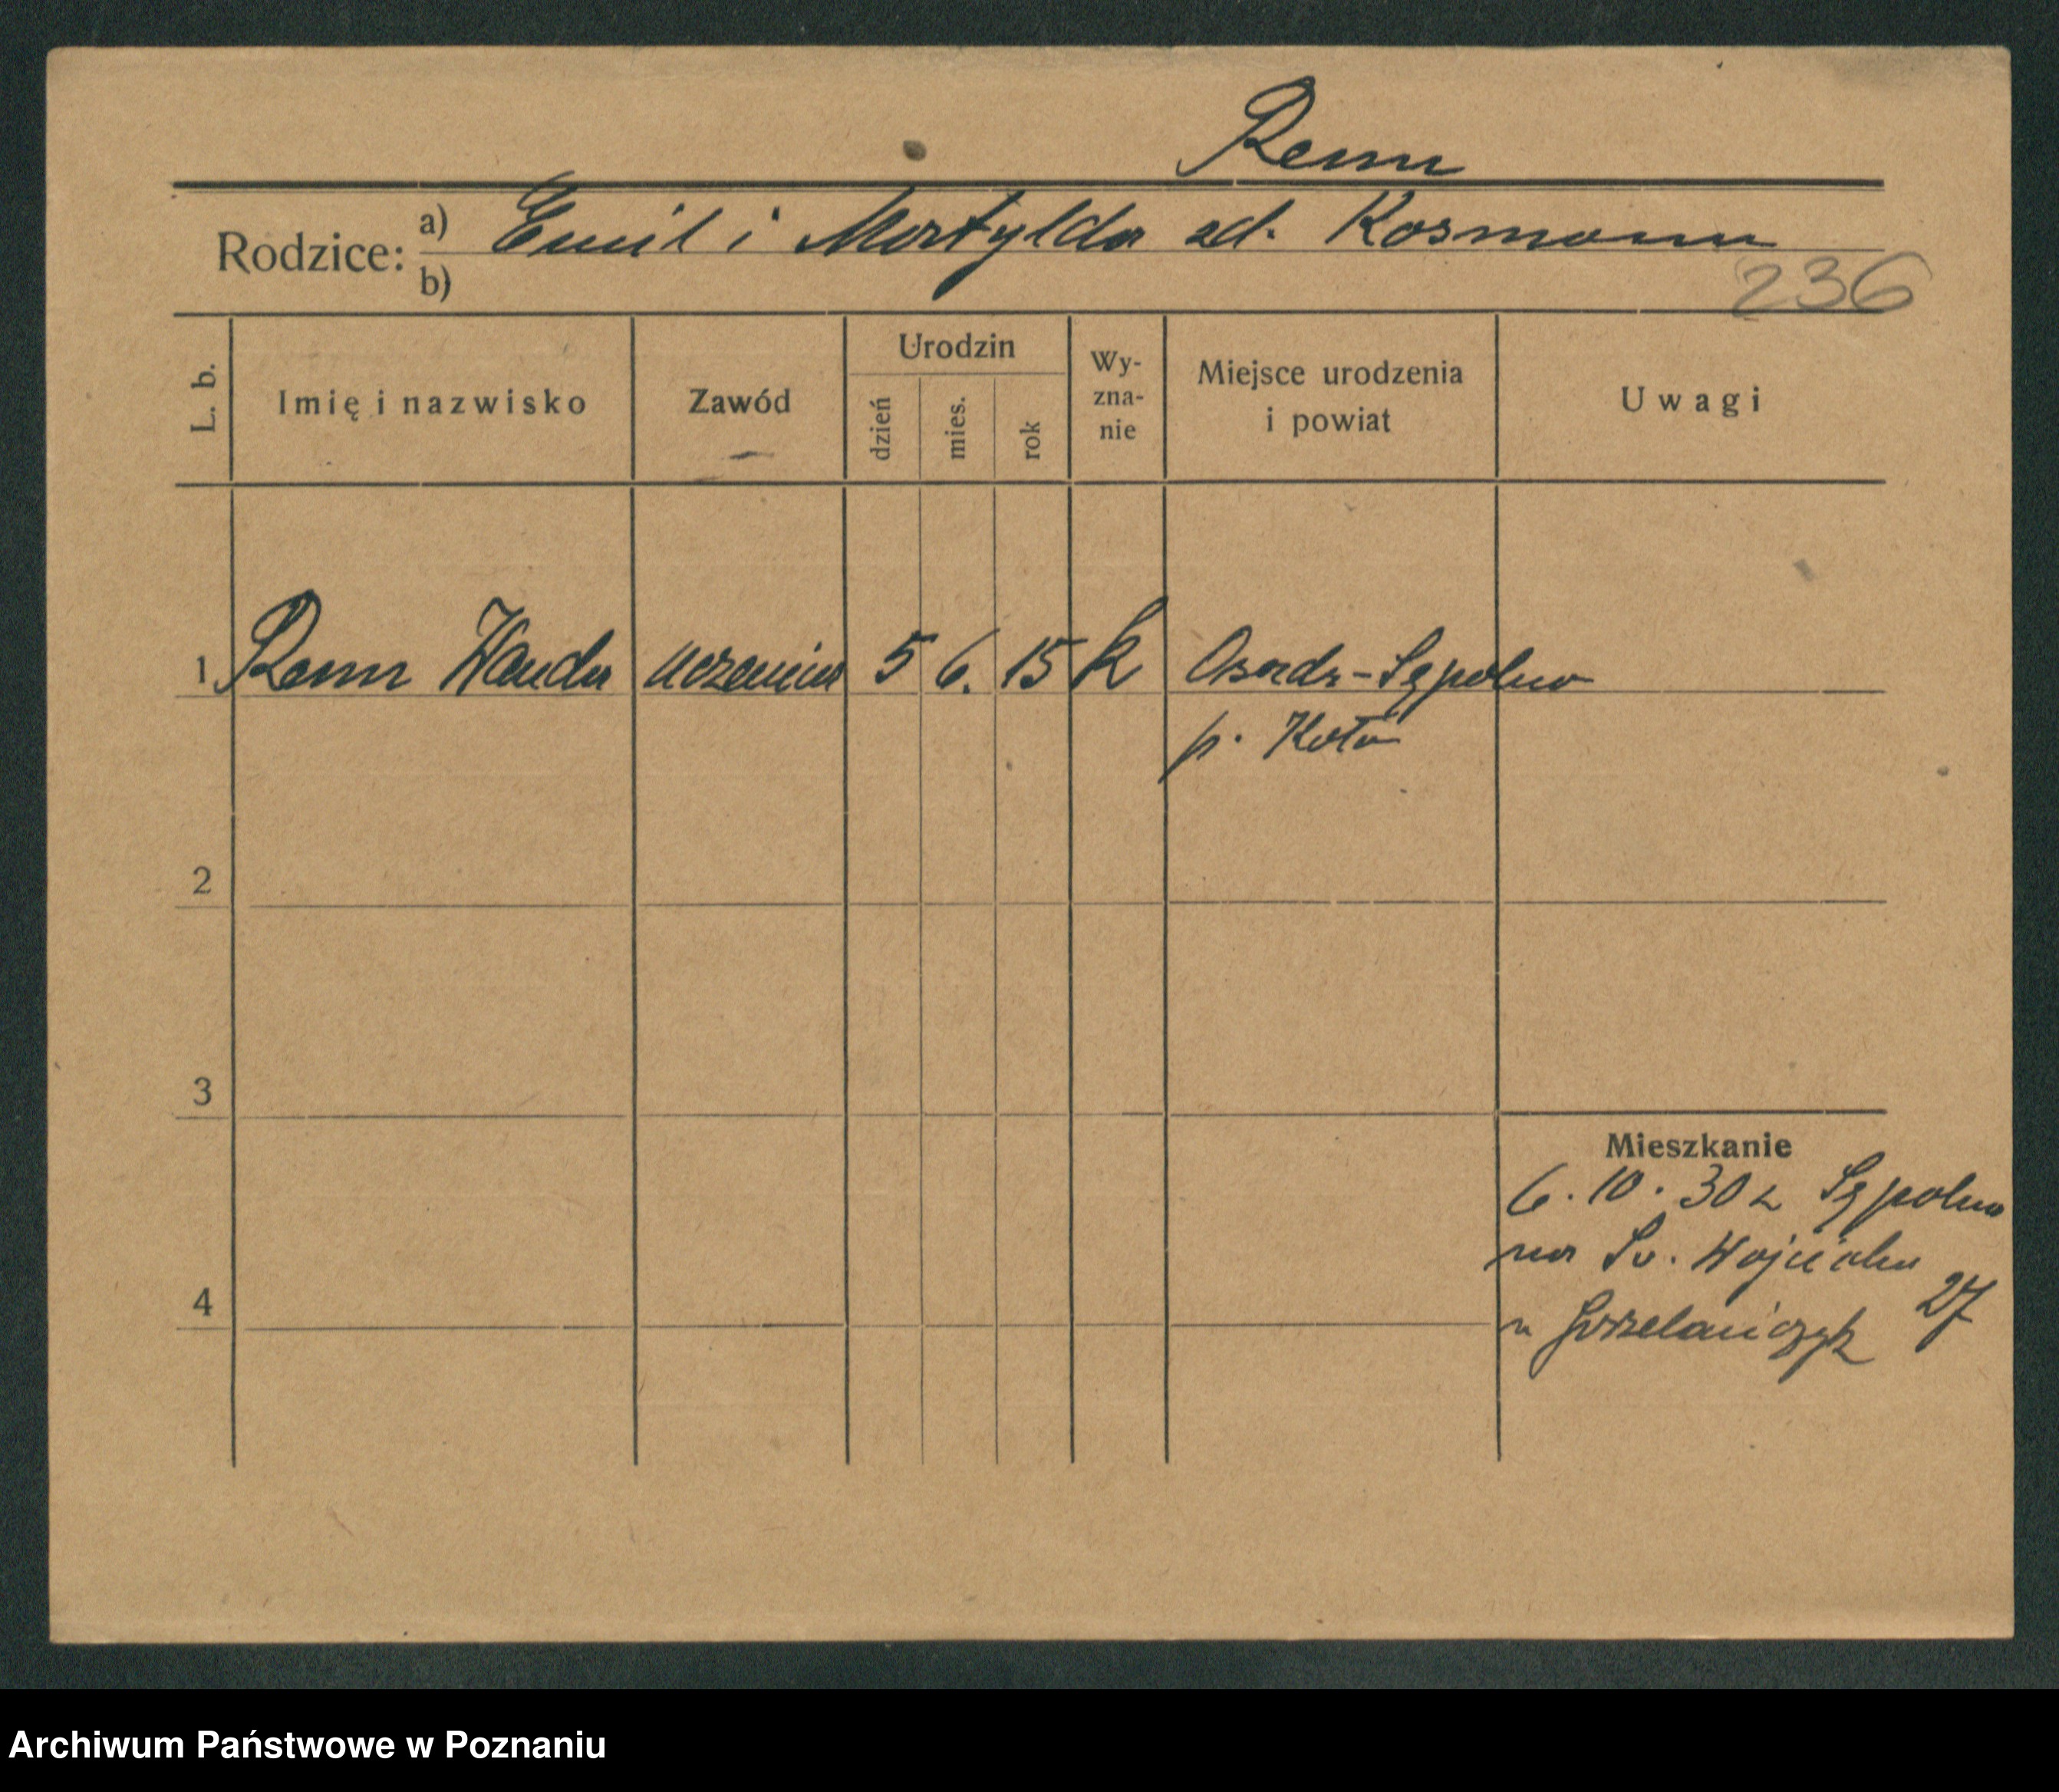 Renn
Rodzice: a) Emil i Matylda zd. Kosmann
b)
236
L. b.
Imię i nazwisko
Zawód
Urodzin
dzień
mies.
rok
Wy-
zna-
nie
Miejsce urodzenia
i powiat
Uwagi
1 Renn Wanda uczenica 5 6. 15 k Osada-Sępolno
p. Koło
2
3
Mieszkanie
6.10.30 z Sępolno
na Św. Wojciecha
27
4
Archiwum Państwowe w Poznaniu